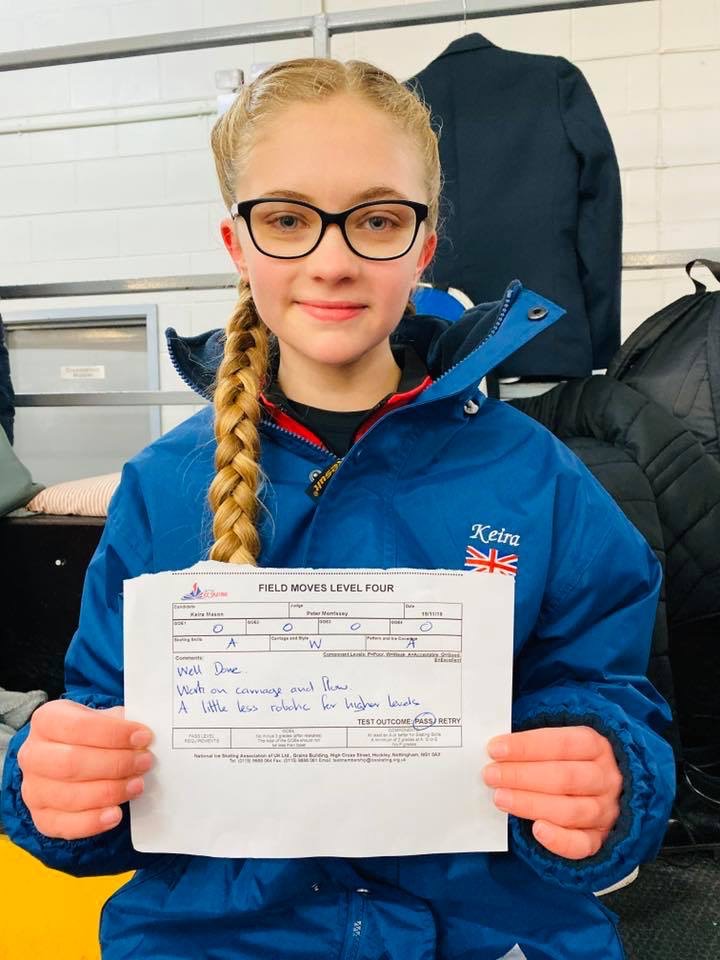 Keira
FIELD MOVES LEVEL FOUR
Candidate Judge Date
Keira Mason Peter Morrissey 19/11/19
GOE1 GOE2 GOE3 GOE4
0 0 0 0
Skating Skills Carriage and Style Pattern and Ice Coverage
A W A
Comments: Component Levels: P=Poor, W=Weak, A=Acceptable, G=Good, E=Excellent
Well Done.
Work on carriage and flow.
A little less robotic for higher levels
TEST OUTCOME: PASS / RETRY
PASS LEVEL REQUIREMENTS
GOEs
COMPONENTS
No minus 3 grades
National Ice Skating Association of UK Ltd., Grains Building, High Cross Street, Hockley, Nottingham, NG1 3AX